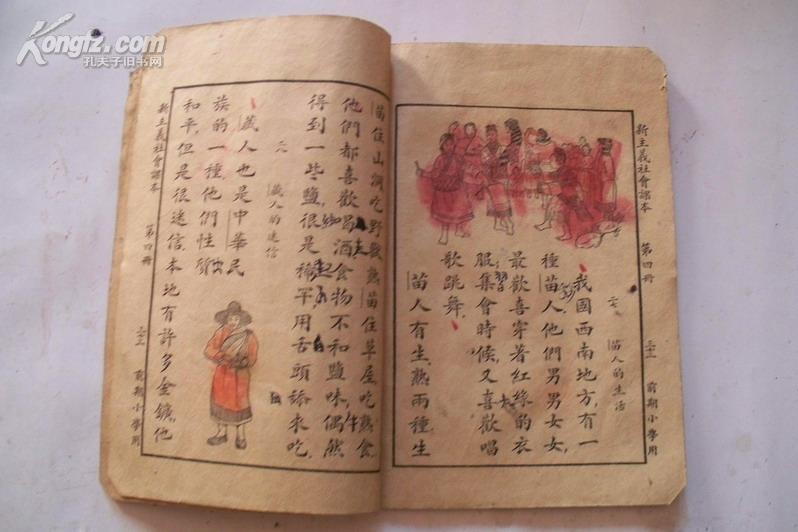 Kongfz.com
孔夫子旧书网
新主義社會課本 第四冊 三二 前期小學用
二七 苗人的生活
我國西南地方有一
種苗人他們男男女女,
最歡喜穿着紅綠的衣
服集會時候,又喜歡唱
歌跳舞。
苗人有生,熟兩種生
苗住山洞,吃野獸,熟苗住草屋,吃熟食。
他們都喜歡喝酒食物不和鹽味,偶然
得到一些鹽,很是稀罕,用舌頭舔來吃。
二八 藏人的迷信
藏人也是中華民
族的一種,他們性質
和平,但是很迷信,本地有許多金鑛,他
新主義社會課本 第四冊 三三 前期小學用